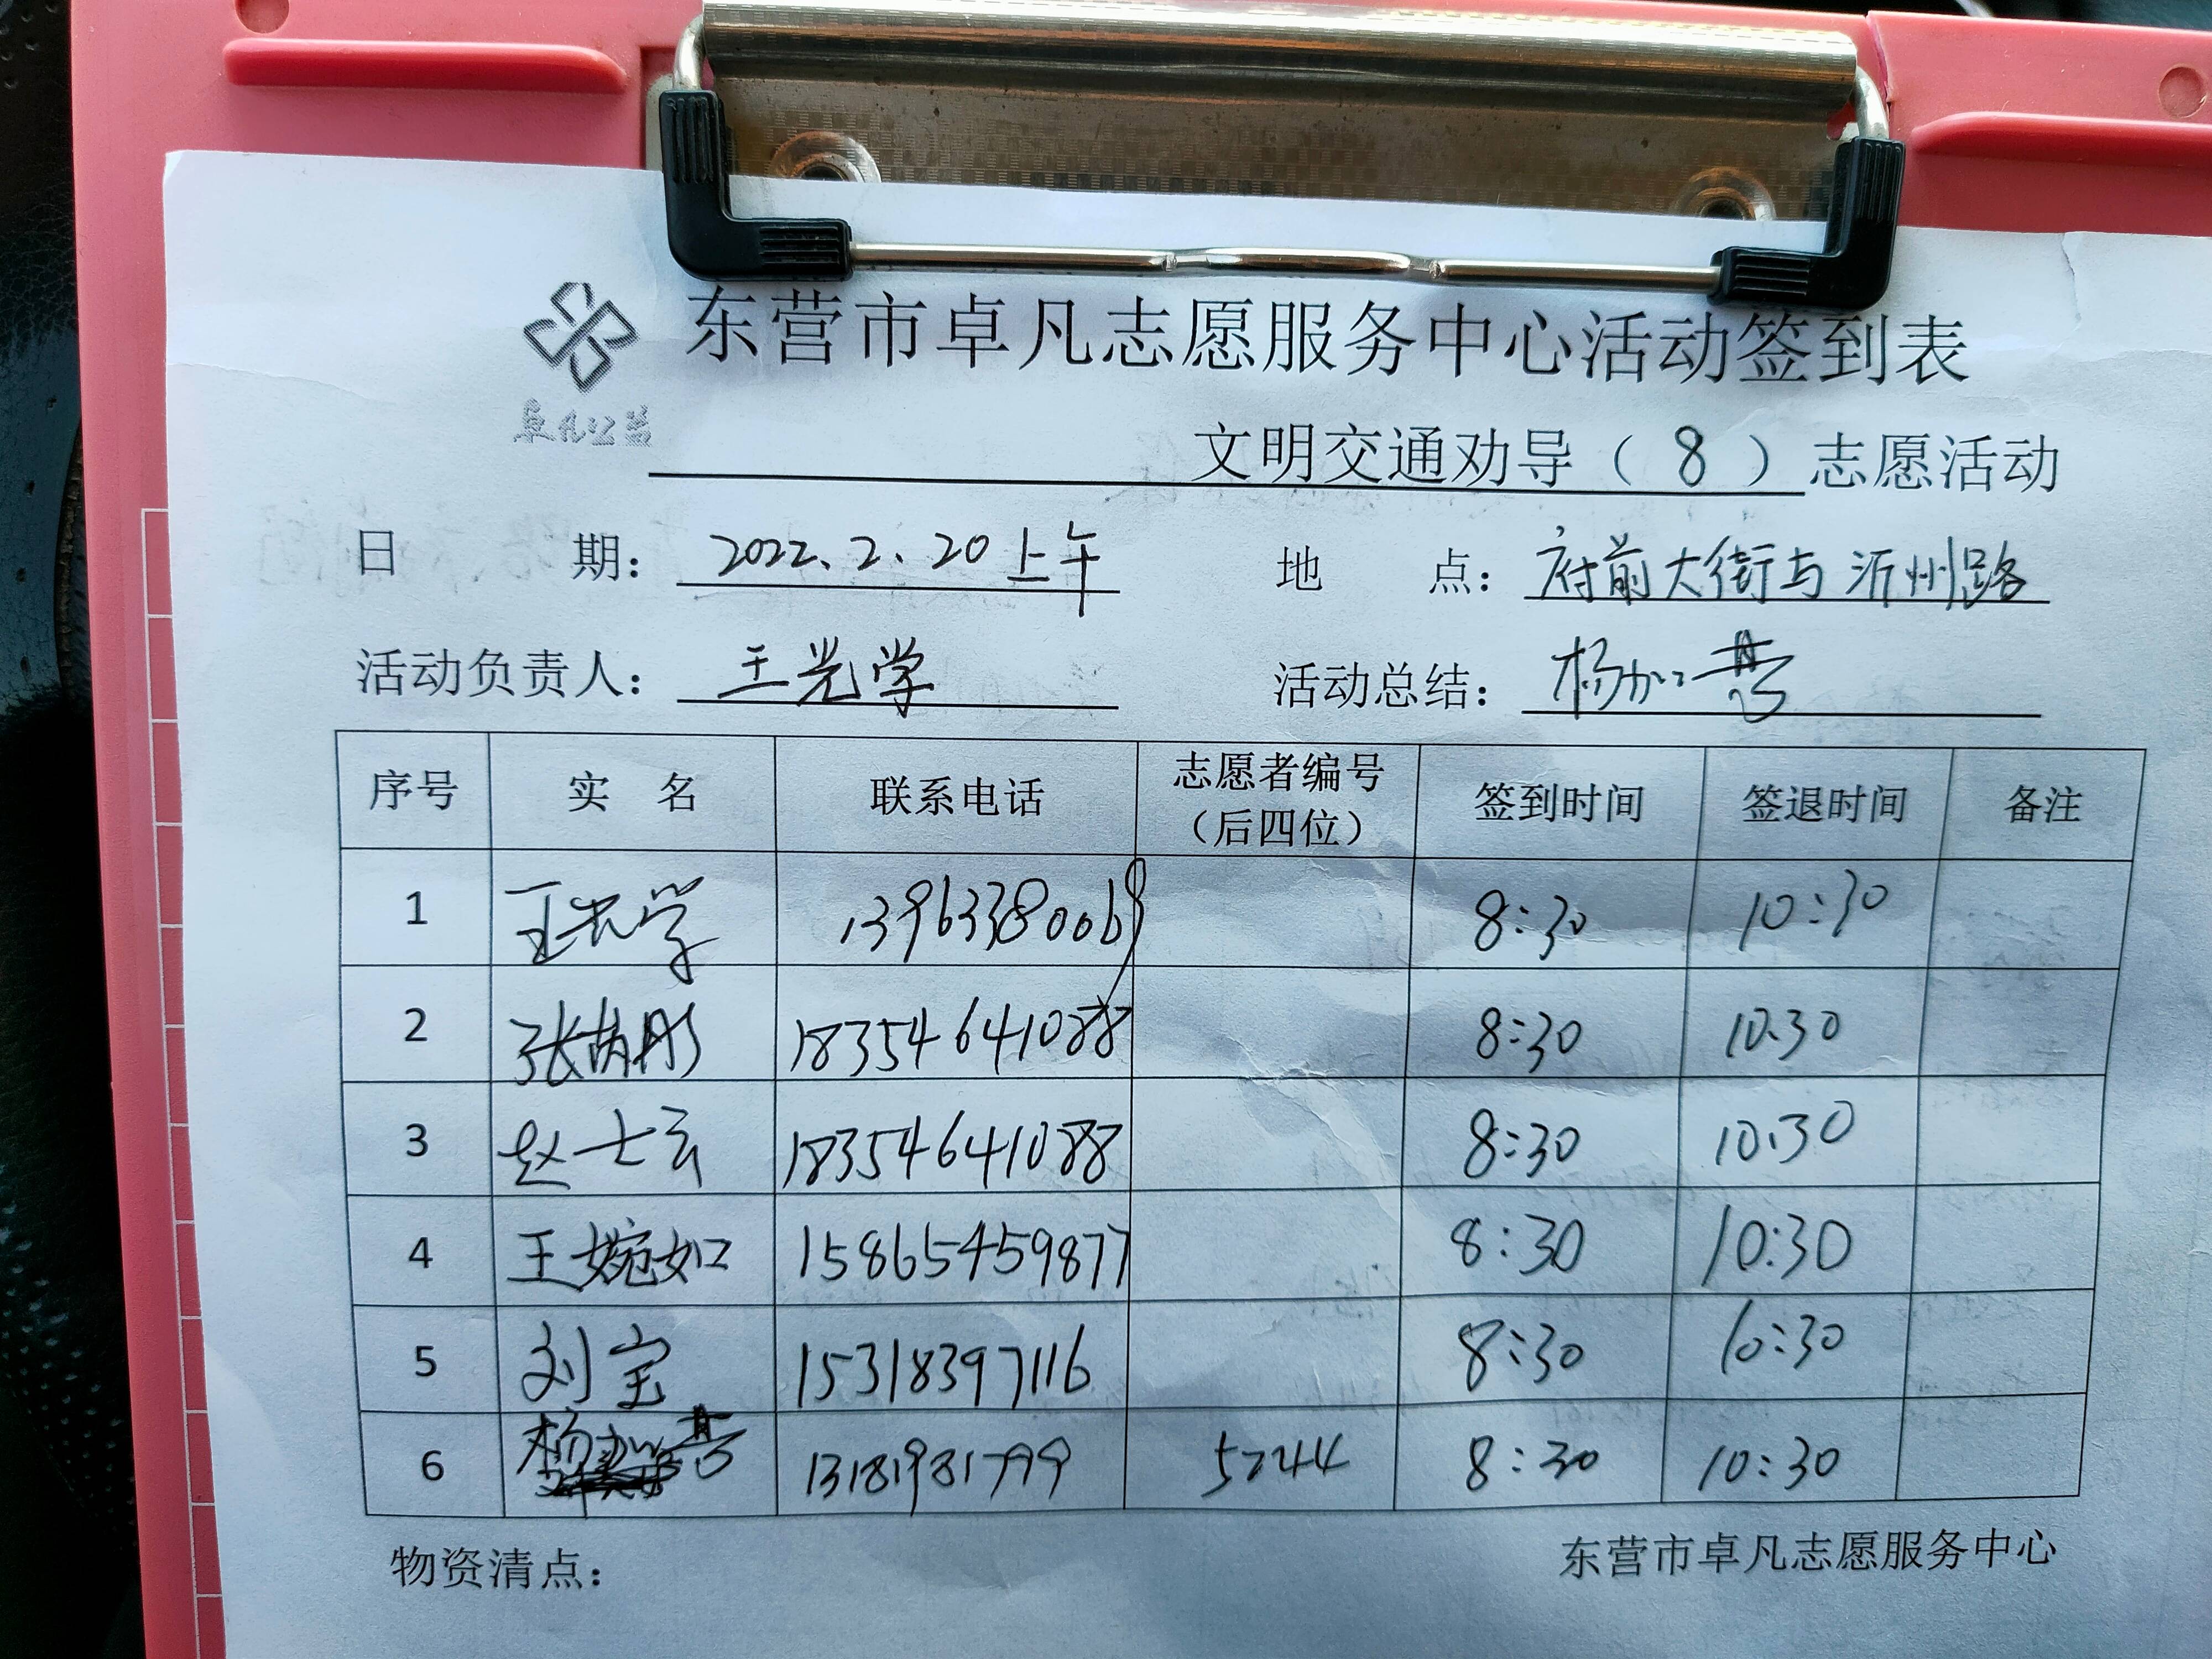 东营市卓凡志愿服务中心活动签到表
卓凡公益
文明交通劝导（8）志愿活动
日期： 2022.2.20上午 地点： 府前大街与沂州路
活动负责人： 王光学 活动总结： 杨加营
序号 实名 联系电话 志愿者编号（后四位） 签到时间 签退时间 备注
1 王光学 13963380069 8:30 10:30
2 张芮彤 18354641088 8:30 10.30
3 赵士云 18354641088 8:30 10.30
4 王婉如 15865459877 8:30 10:30
5 刘宝 15318397116 8:30 10:30
6 杨 营 13181981799 5244 8:30 10:30
物资清点：
东营市卓凡志愿服务中心